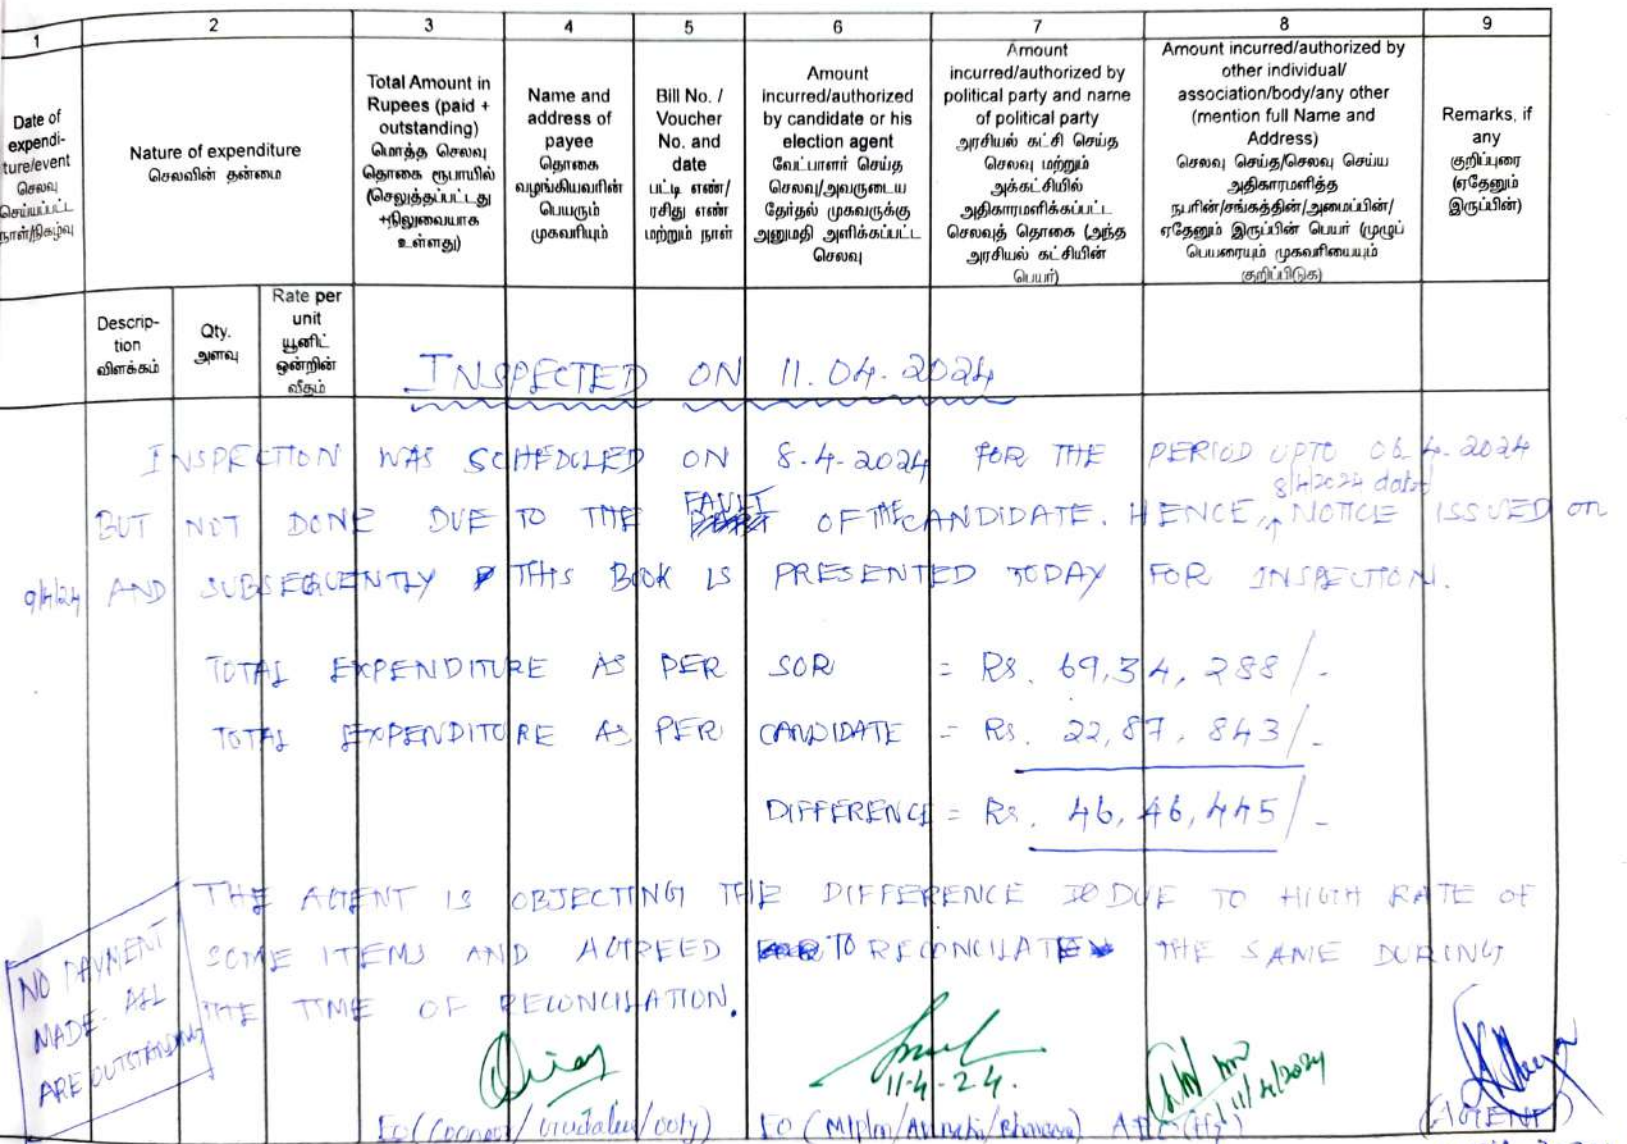 1
2
3
4
5
6
7
8
9
Date of
expendi-
ture/event
செலவு
செய்யப்பட்ட
நாள்/நிகழ்வு
Nature of expenditure
செலவின் தன்மை
Total Amount in
Rupees (paid +
outstanding)
மொத்த செலவு
தொகை ரூபாயில்
(செலுத்தப்பட்டது
+நிலுவையாக
உள்ளது)
Name and
address of
payee
தொகை
வழங்கியவரின்
பெயரும்
முகவரியும்
Bill No. /
Voucher
No. and
date
பட்டி எண்/
ரசிது எண்
மற்றும் நாள்
Amount
incurred/authorized
by candidate or his
election agent
வேட்பாளர் செய்த
செலவு/அவருடைய
தேர்தல் முகவருக்கு
அனுமதி அளிக்கப்பட்ட
செலவு
Amount
incurred/authorized by
political party and name
of political party
அரசியல் கட்சி செய்த
செலவு மற்றும்
அக்கட்சியில்
அதிகாரமளிக்கப்பட்ட
செலவுத் தொகை (அந்த
அரசியல் கட்சியின்
பெயர்)
Amount incurred/authorized by
other individual/
association/body/any other
(mention full Name and
Address)
செலவு செய்த/செலவு செய்ய
அதிகாரமளித்த
நபரின்/சங்கத்தின்/அமைப்பின்/
ஏதேனும் இருப்பின் பெயர் (முழுப்
பெயரையும் முகவரியையும்
குறிப்பிடுக)
Remarks, if
any
குறிப்புரை
(ஏதேனும்
இருப்பின்)
Descrip-
tion
விளக்கம்
Qty.
அளவு
Rate per
unit
யூனிட்
ஒன்றின்
வீதம்
INSPECTED ON 11.04.2024
INSPECTION WAS SCHEDULED ON 8.4.2024 FOR THE PERIOD UPTO 06.4.2024
8/4/2024 dated
BUT NOT DONE DUE TO THE FAULT OF THE CANDIDATE. HENCE, NOTICE ISSUED on
9/4/24 AND SUBSEQUENTLY THIS BOOK IS PRESENTED TODAY FOR INSPECTION.
TOTAL EXPENDITURE AS PER SOR = Rs. 69,34,288/-
TOTAL EXPENDITURE AS PER CANDIDATE = Rs. 22,87,843/-
DIFFERENCE = Rs. 46,46,445/-
THE AGENT IS OBJECTING THE DIFFERENCE DUE TO HIGH RATE OF
SOME ITEMS AND AGREED TO RECONCILATE THE SAME DURING
THE TIME OF RECONCILATION.
NO PAYMENT
MADE. ALL
ARE OUTSTANDING
11-4-24.
11/4/2024
EO (Coonoor/Gudalur/Ooty)
EO (M/plm/Avinashi/Bhavani)
(AGENT)